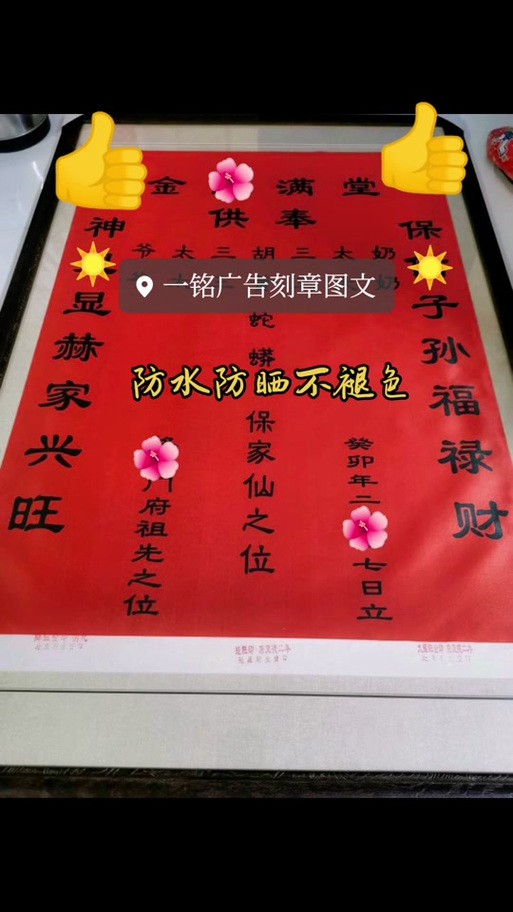 金 满堂
供奉
保 子孙福禄财
神 显赫家兴旺
爷太三胡三太奶
一铭广告刻章图文
蛇蟒
防水防晒不褪色
保家仙之位
癸卯年二 七日立
府祖先之位